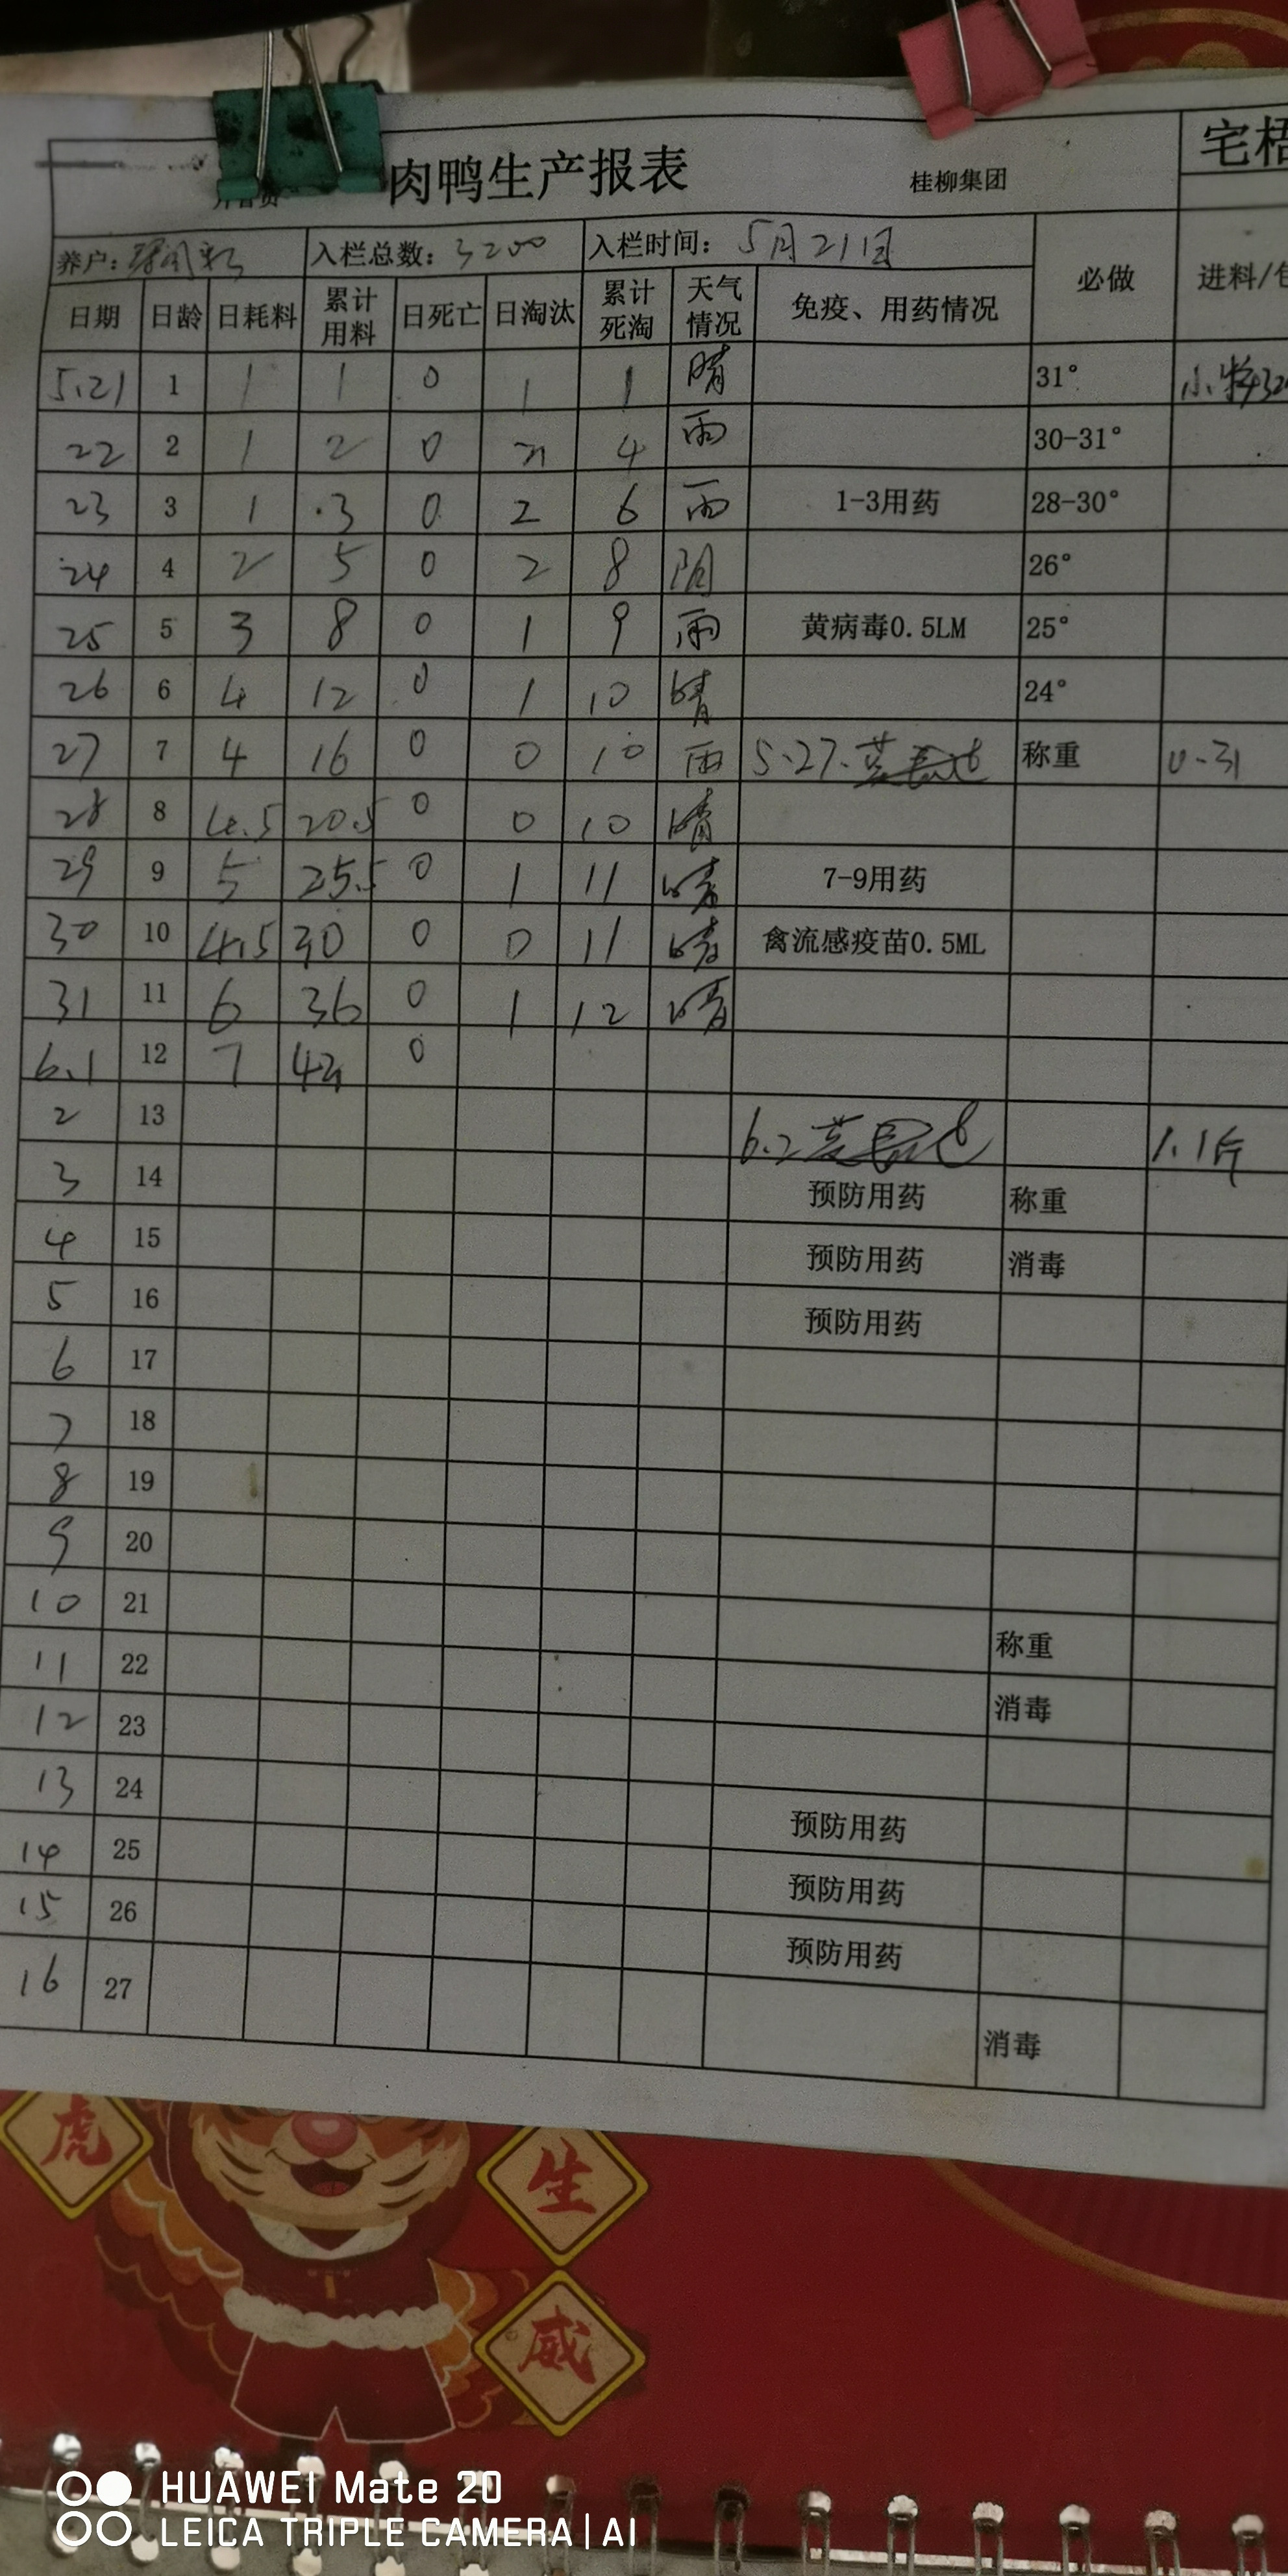 肉鸭生产报表 桂柳集团 宅梧
养户: 入栏总数: 3200 入栏时间: 5月21日 必做 进料/
日期 日龄 日耗料 累计用料 日死亡 日淘汰 累计死淘 天气情况 免疫、用药情况
5.21 1 1 1 0 1 1 晴 31°
22 2 1 2 0 4 雨 30-31°
23 3 1 3 0 2 6 雨 1-3用药 28-30°
24 4 2 5 0 2 8 阴 26°
25 5 3 8 0 1 9 雨 黄病毒0.5LM 25°
26 6 4 12 0 1 10 晴 24°
27 7 4 16 0 0 10 雨 5.27. 称重 0.31
28 8 4.5 20.5 0 0 10 晴
29 9 5 25.5 0 1 11 晴 7-9用药
30 10 4.5 30 0 0 11 晴 禽流感疫苗0.5ML
31 11 6 36 0 1 12 晴
6.1 12 7 0
2 13 6.2 1.1斤
3 14 预防用药 称重
4 15 预防用药 消毒
5 16 预防用药
6 17
7 18
8 19
9 20
10 21
11 22 称重
12 23 消毒
13 24
14 25 预防用药
15 26 预防用药
16 27 预防用药
消毒
虎
生
威
HUAWEI Mate 20
LEICA TRIPLE CAMERA | AI